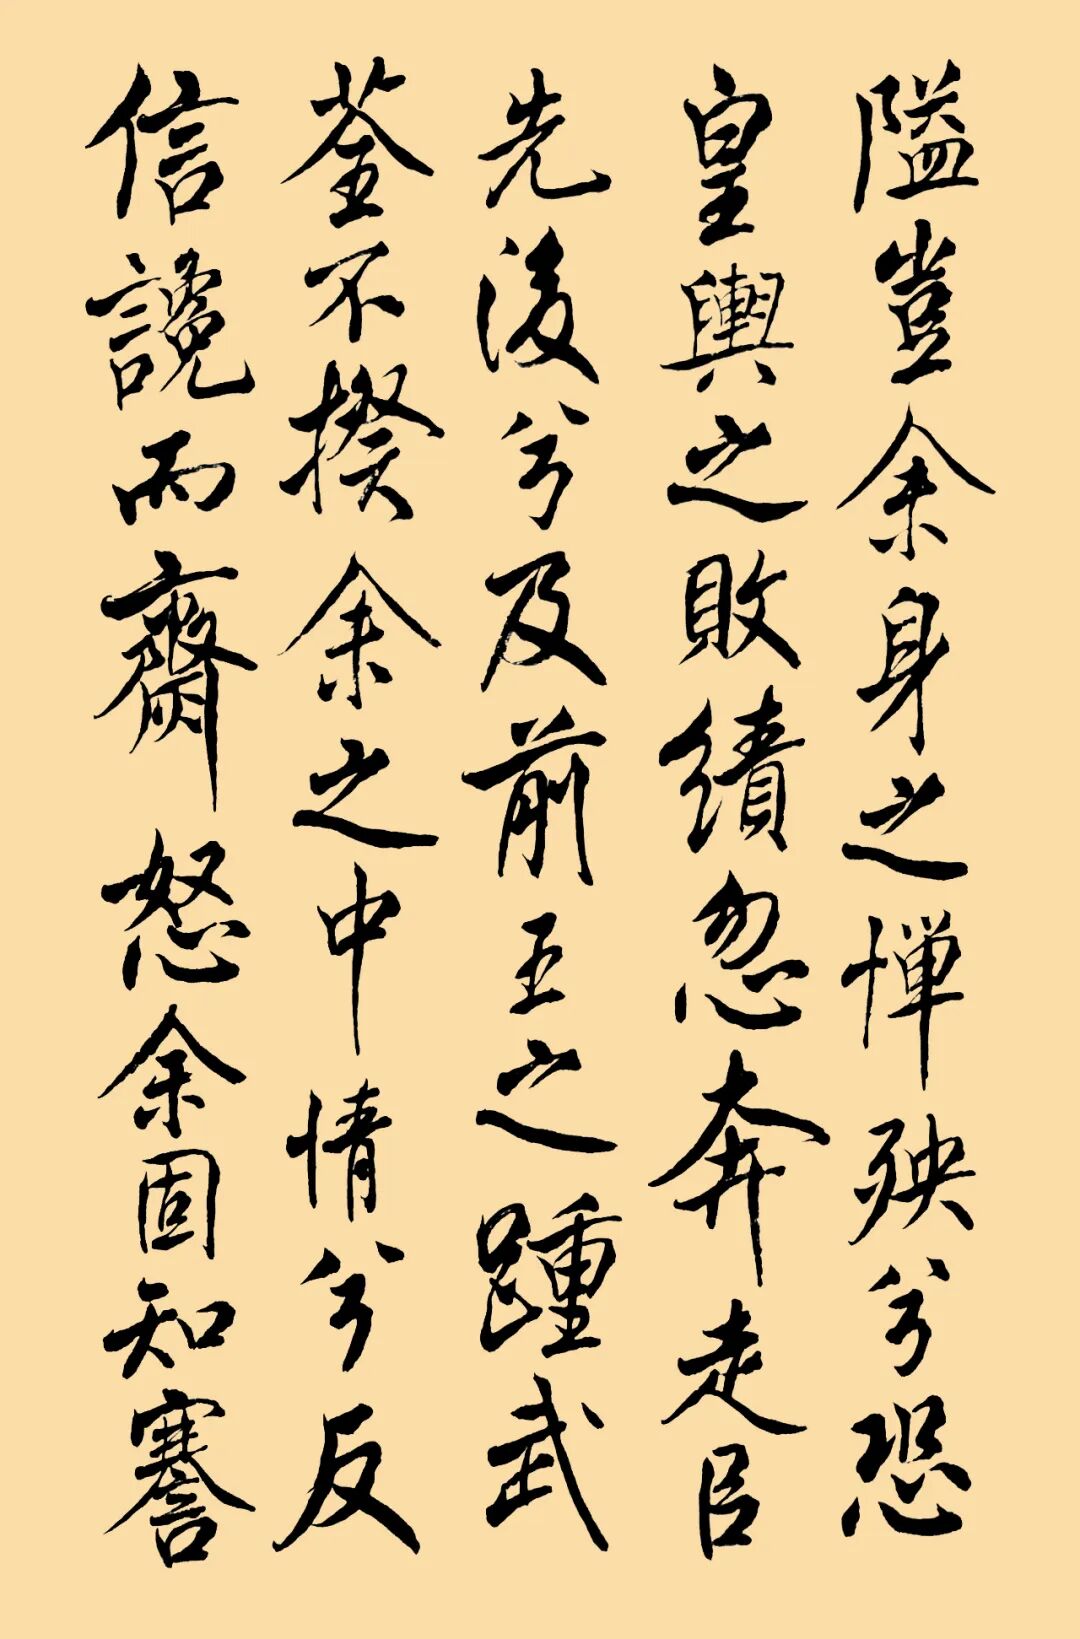 隘豈余身之憚殃兮恐
皇輿之敗績忽奔走㠯
先後兮及前王之踵武
荃不揆余之中情兮反
信讒而齌怒余固知謇